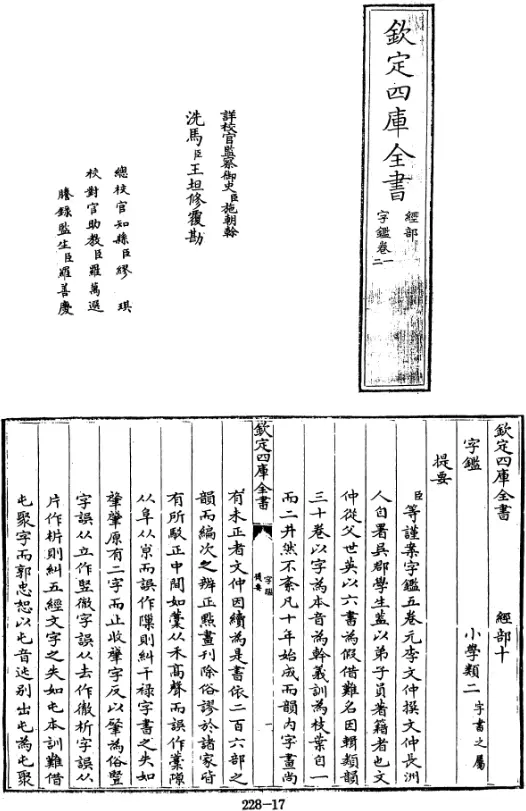 欽定四庫全書
經部
字鑑卷一
二
詳校官監察御史臣施朝幹
洗馬臣王坦修覆勘
總校官知縣臣繆琪
校對官助教臣羅萬選
謄錄監生臣羅善慶
欽定四庫全書 經部十
字鑑 小學類二字書之屬
提要
臣等謹案字鑑五卷元李文仲撰文仲長洲
人自署吳郡學生蓋以弟子員著籍者也文
仲從父世英以六書為假借難名因輯類韻
三十卷以字為本音為幹義訓為枝葉自一
而二井然不紊凡十年始成而韻內字畫尚
欽定四庫全書
字鑑
提要
一
有未正者文仲因續為是書依二百六部之
韻而編次之辨正點畫刊除俗謬於諸家皆
有所駁正中間如稾从禾高聲而誤作藁隙
从阜从𡭴而誤作隟則糾干祿字書之失如
肇肈原有二字而止收肈字反以肇為俗豎
字誤从立作竪徹字誤从去作徹析字誤从
片作㭊則糾五經文字之失如屯本訓難借
屯聚字而郭忠恕以屯音迍别出屯為屯聚
228-17